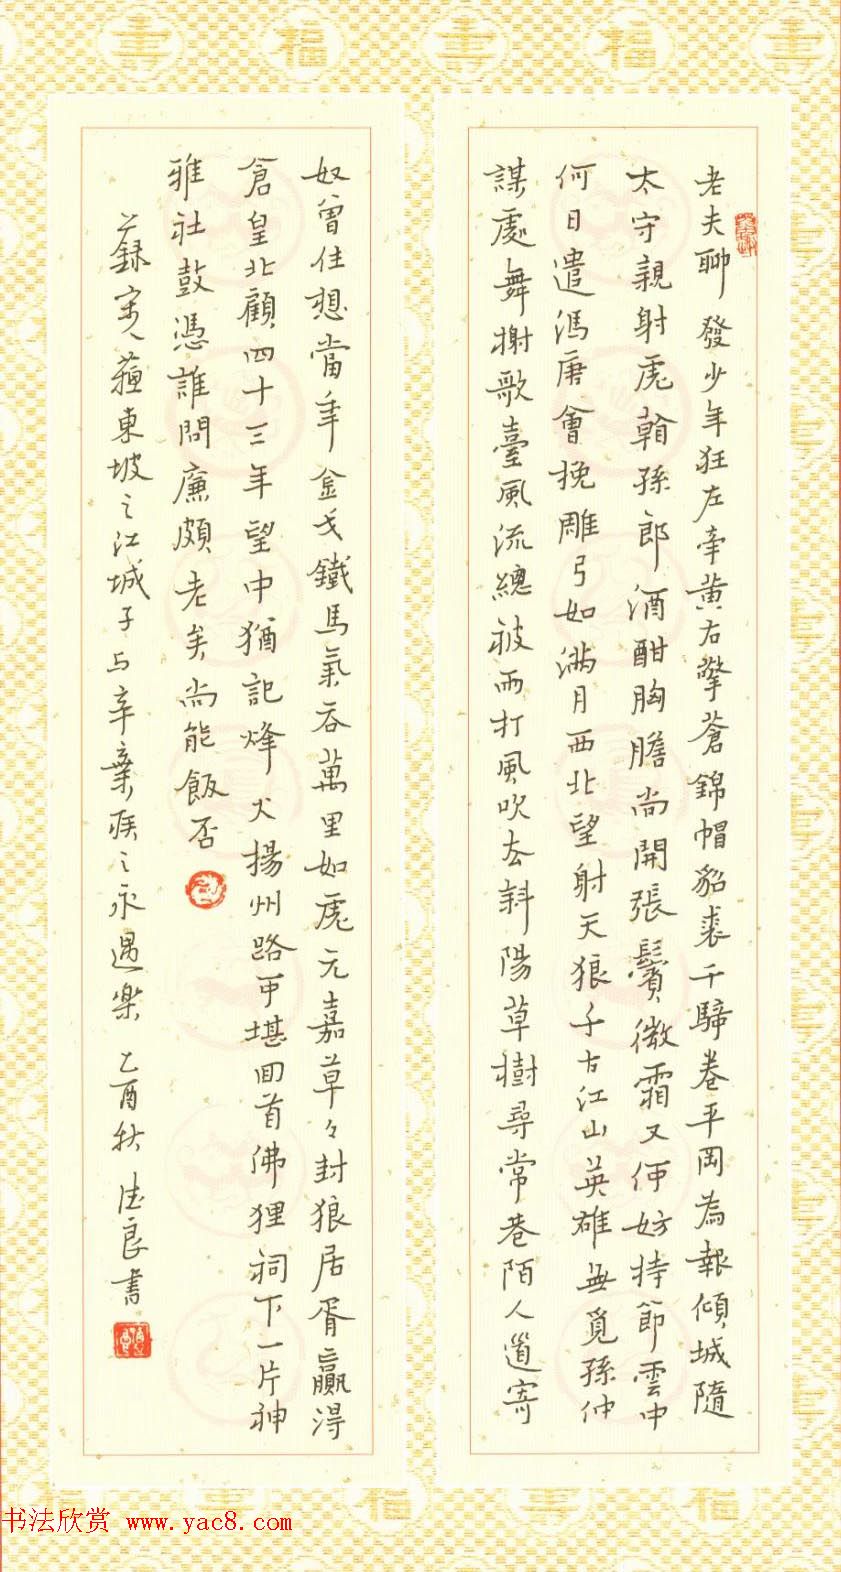 老夫聊發少年狂左牽黃右擎蒼錦帽貂裘千騎卷平岡為報傾城隨
太守親射虎看孫郎酒酣胸膽尚開張鬢微霜又何妨持節雲中
何日遣馮唐會挽雕弓如滿月西北望射天狼千古江山英雄無覓孫仲
謀處舞榭歌臺風流總被雨打風吹去斜陽草樹尋常巷陌人道寄
奴曾住想當年金戈鐵馬氣吞萬里如虎元嘉草々封狼居胥贏得
倉皇北顧四十三年望中猶記烽火揚州路可堪回首佛狸祠下一片神
鴉社鼓憑誰問廉頗老矣尚能飯否
錄宋人蘇東坡之江城子与辛棄疾之永遇樂 乙酉秋 德良書
书法欣赏 www.yac8.com